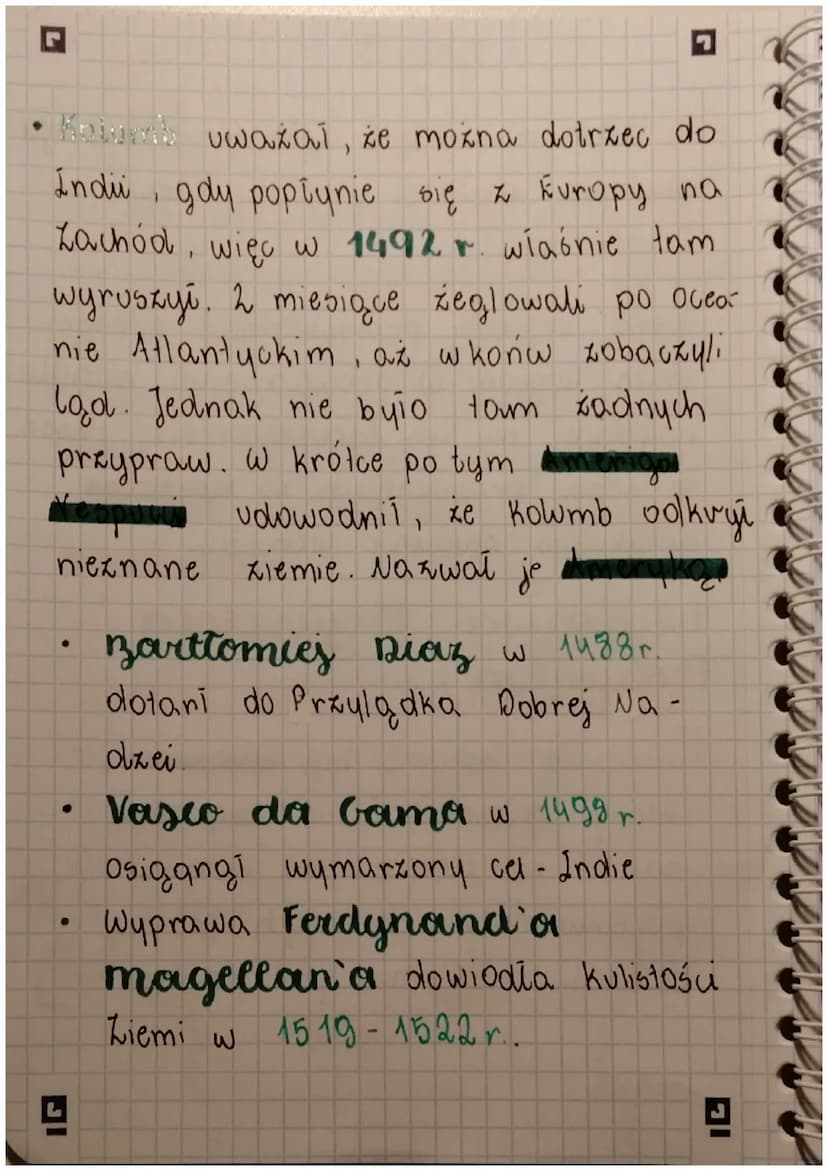 • Kolumb uważał, że można dotrzeć do
Indii, gdy popłynie się z Europy na
Zachód, więc w 1492 r. właśnie tam
wyruszył. 2 miesiące żeglowali po ocea-
nie Atlantyckim, aż wkońu zobaczyli
ląd. Jednak nie było tam żadnych
przypraw. W krótce po tym Amerigo
Vespucii udowodnił, że Kolumb odkrył
nieznane ziemie. Nazwał je Ameryką.
• Bartłomiej Diaz w 1488r.
dotarł do Przylądka Dobrej Na-
dzei.
• Vasco da Gama w 1498 r.
osiągnął wymarzony cel - Indie
• Wyprawa Ferdynand'a
magellan'a dowiodła kulistości
Ziemi w 1519 - 1522 r..